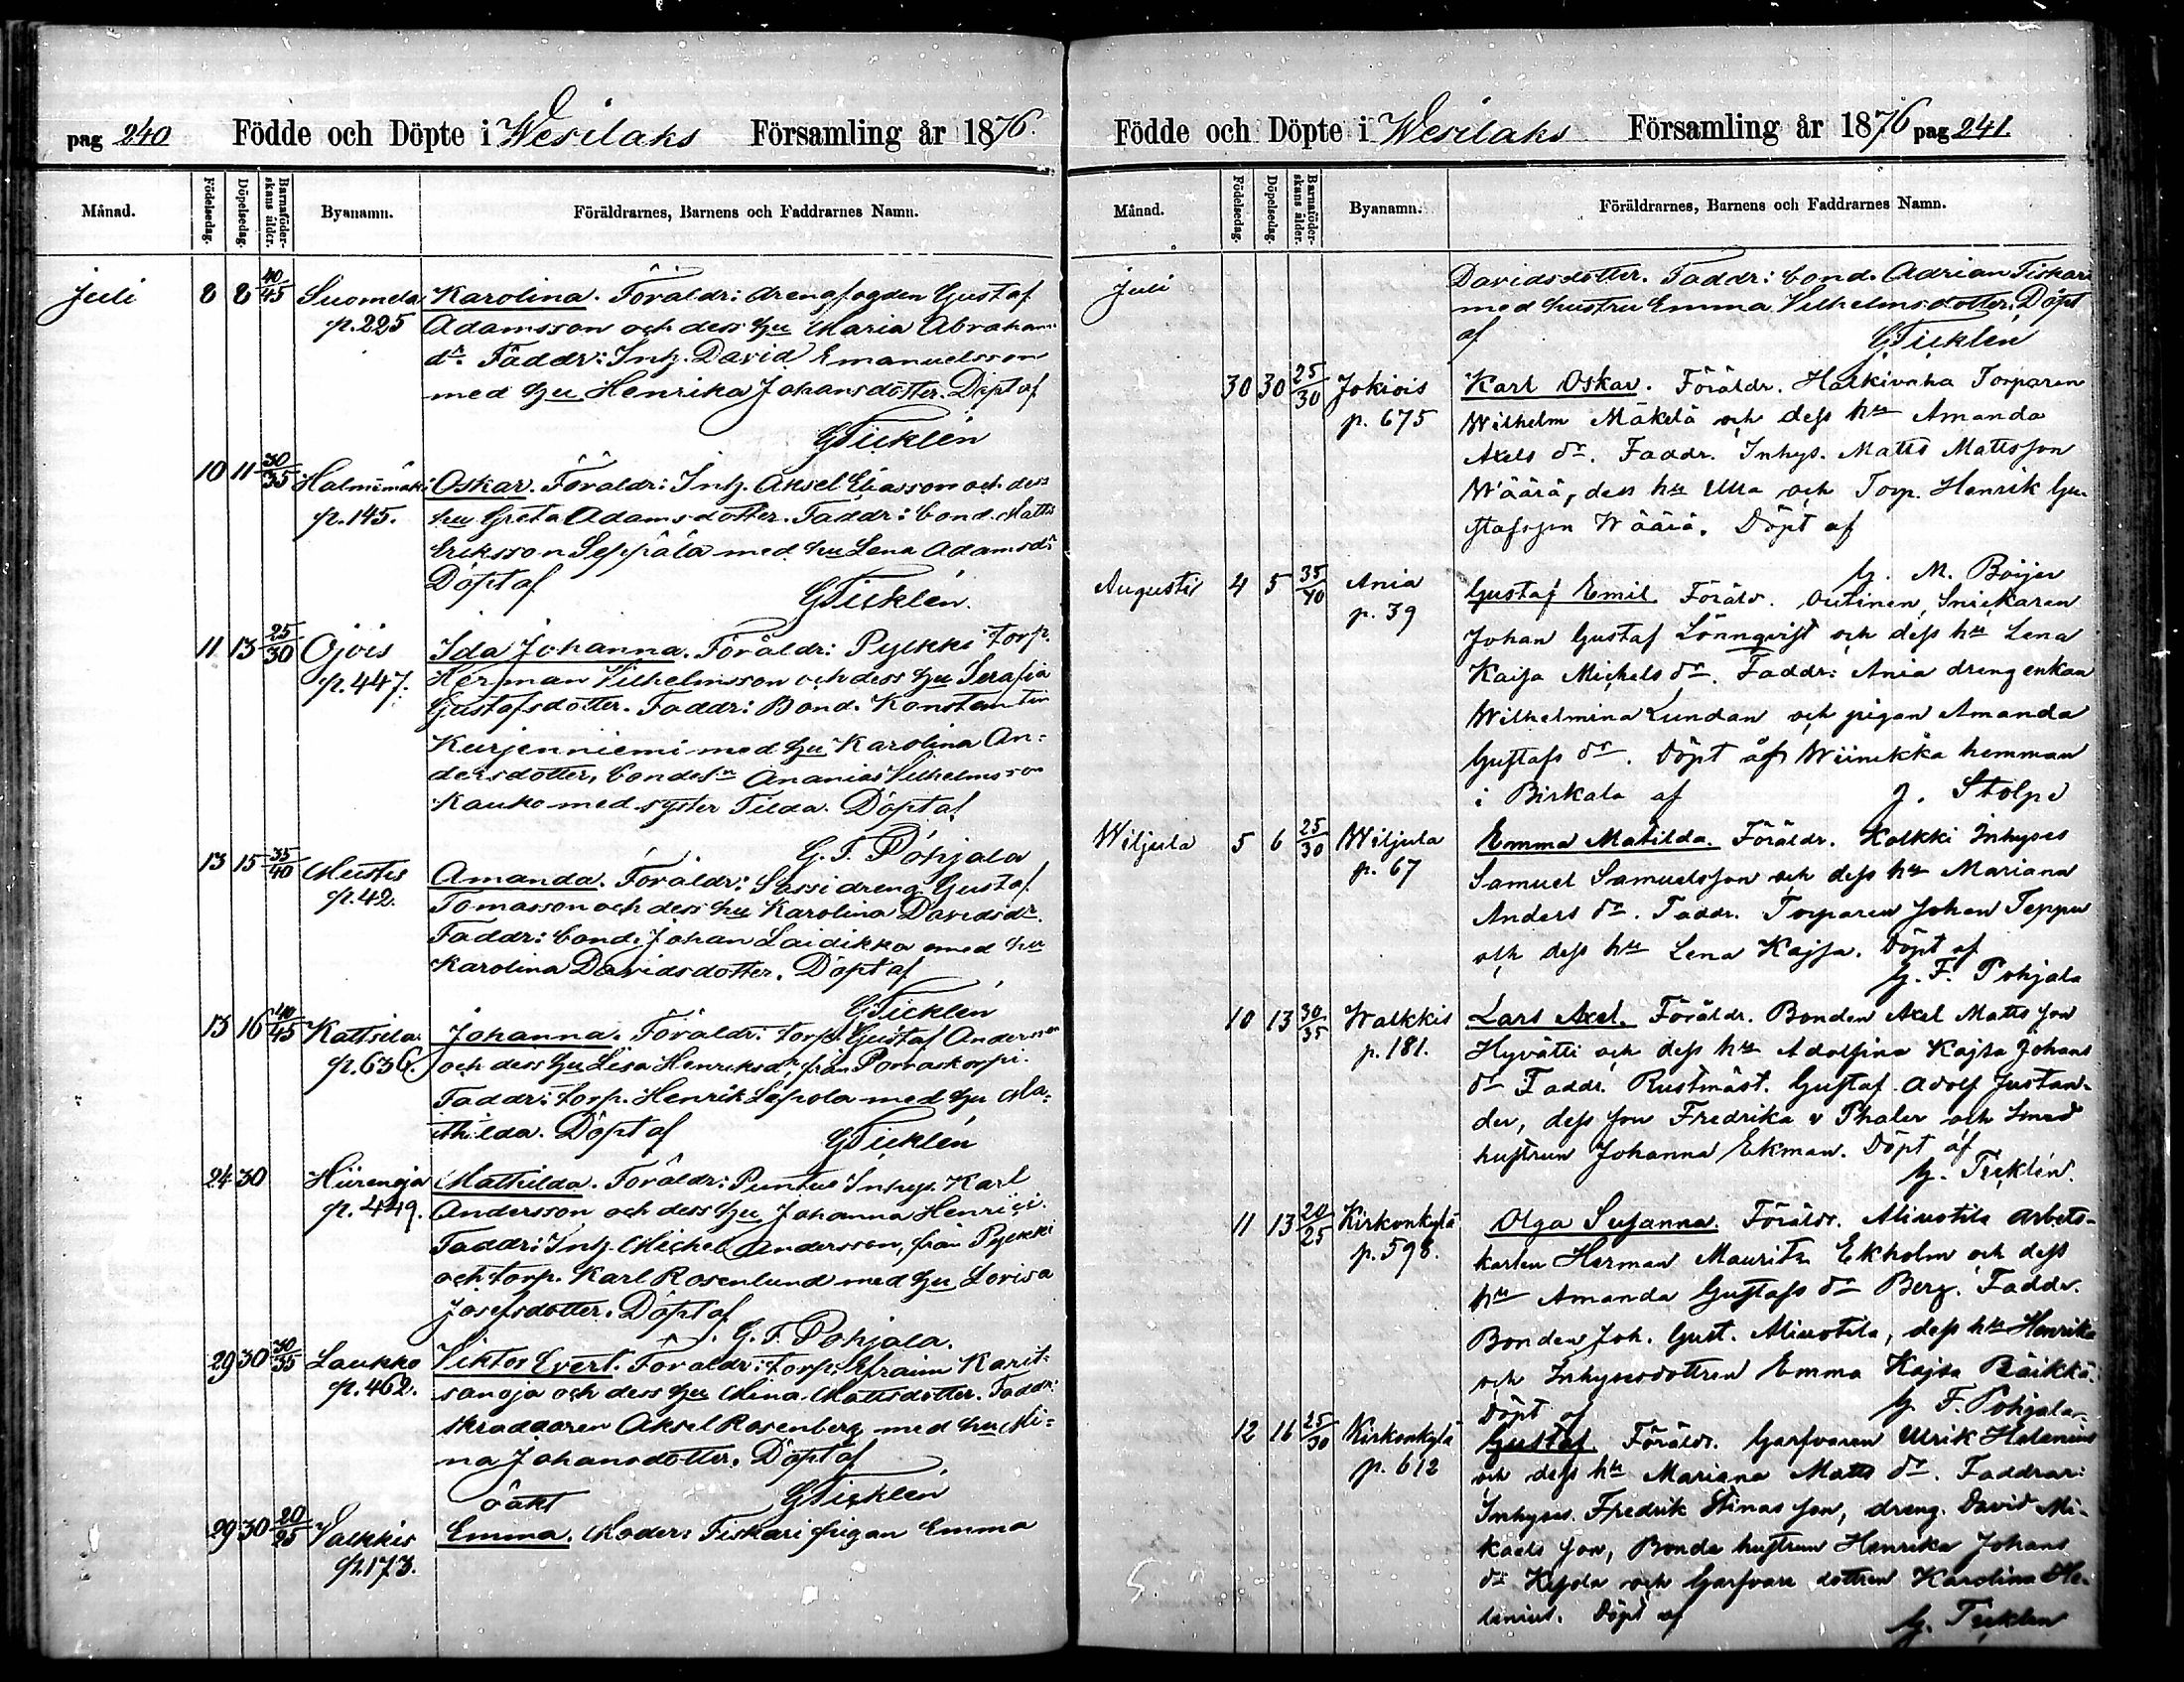 pag 240 Födde och Döpte i Wesilaks Församling år 1876.
Månad. Födelsedag. Döpelsedag. Barnaföderskans ålder. Byanamn. Föräldrarnes, Barnens och Faddrarnes Namn.
Juli 8 8 40/45 Suomela Karolina. Föräldr: drengfogden Gustaf
p. 225 Adamsson och dess hu Maria Abrahams
dr. Faddr: Inh. David Emanuelsson
med hu Henrika Johansdotter. Döpt af
G Ticklén
10 11 30/35 Halmemäki Oskar. Föräldr: Inh. Aksel Eliasson och dess
p. 145. hu Greta Adamsdotter. Faddr: bond. Matts
Eriksson Seppälä med hu Lena Adamsdr
Döpt af G Ticklén.
11 13 25/30 Ojois Ida Johanna. Föräldr: Pylkki torp.
p. 447. Herman Vilhelmsson och dess hu Serafia
Gustafsdotter. Faddr: Bond. Konstantin
Kurjenniemi med hu Karolina An-
dersdotter, bondesn Ananias Vilhelmsson
Kauko med syster Tilda. Döpt af
G. F. Pohjala
13 15 35/40 Mustis Amanda. Föräldr: Sassi dreng. Gustaf
p. 42. Tomasson och dess hu Karolina Davidsdr.
Faddr: bond. Johan Laidikka med hu
Karolina Davidsdotter. Döpt af
G Ticklén
13 16 40/45 Kattsila Johanna. Föräldr: torp. Gustaf Andersson
p. 636. och dess hu Lisa Henriksdr, från Porraskorpi.
Faddr: torp. Henrik Lepola med hu Ma-
thilda. Döpt af G Ticklén
24 30 Hiirenoja Mathilda. Föräldr: Puntus Inhys. Karl
p. 449. Andersson och dess hu Johanna Henrici.
Faddr: Inh. Michel Andersson, från Pylkki
och torp. Karl Rosenlund med hu Lovisa
Josefsdotter. Döpt af
G. F. Pohjala.
29 30 30/35 Laukko Viktor Evert. Föräldr: torp. Efraim Karit-
p. 462. sanoja och dess hu Mina Mattsdotter. Faddr:
skraddaren Aksel Rosenberg med hu Mi-
na Johansdotter. Döpt af
oäkt G Ticklén
29 30 20/25 Valkkis Emma. Moder: Tiskari pigan Emma
p. 173.
Födde och Döpte i Wesilaks Församling år 1876 pag 241.
Månad. Födelsedag. Döpelsedag. Barnaföderskans ålder. Byanamn. Föräldrarnes, Barnens och Faddrarnes Namn.
Juli Davidsdotter. Faddr: bond. Adrian Tiskari
med hustru Emma Vilhelmsdotter. Döpt
af G. Ticklén
30 30 25/30 Jokiois Karl Oskar. Föräldr. Halkivaha Torparen
p. 675 Wilhelm Mäkelä och dess hu Amanda
Axels dr. Faddr. Inhys. Matts Mattsson
Wäärä, dess hu Ulla och Torp. Henrik Gu-
stafsson Wäärä. Döpt af
G. M. Böijer
Augusti 4 5 35/40 Ania Gustaf Emil Föräld. Outinen, Snickaren
p. 39 Johan Gustaf Lönnqvist och dess hu Lena
Kaisa Michels dr. Faddr: Ania drengenkan
Wilhelmina Lundan och pigan Amanda
Gustafs dr. Döpt af Wiinikka hemman
i Birkala af J. Stolpe
Wiljula 5 6 25/30 Wiljula Emma Matilda. Föräldr. Kolkki Inhyses
p. 67 Samuel Samuelsson och dess hu Mariana
Anders dr. Faddr. Torparen Johan Teppu
och dess hu Lena Kajsa. Döpt af
G. F. Pohjala
10 13 30/35 Walkkis Lars Axel. Föräldr. Bonden Axel Matts son
p. 181. Hyvätti och dess hu Adolfina Kajsa Johans
dr Faddr. Rustmäst. Gustaf Adolf Justan-
der, dess fru Fredrika v Thaler och Smed
hustrun Johanna Ekman. Döpt af
G. Ticklén.
11 13 20/25 Kirkonkylä Olga Susanna. Föräldr. Alinotila arbets-
p. 598. karlen Herman Mauritz Ekholm och dess
hu Amanda Gustafs dr Berg. Faddr.
Bonden Joh. Gust. Alinotila, dess hu Henrika
och Inhysesdottren Emma Kajsa Räikkä.
Döpt af G. F. Pohjala
12 16 25/30 Kirkonkylä Gustaf Föräldr. Garfvaren Ulrik Helenius
p. 612 och dess hu Mariana Matts dr. Faddrar:
Inhyses Fredrik son, dreng. David Mi-
kaels son, Bonde hustrun Henrika Johans
dr och Garfvare dottren Karolina He-
lenius. Döpt af G. Ticklén